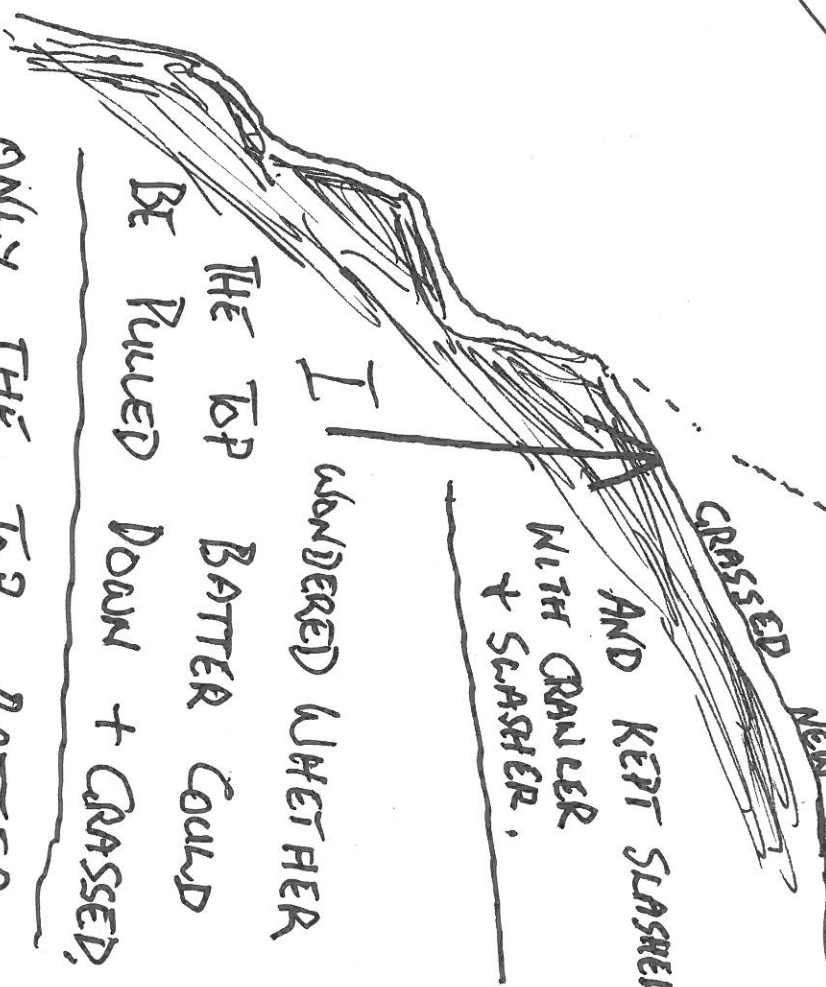 NEW
GRASSED
AND KEPT SLASHED
WITH CRAWLER
+ SLASHER.
I WONDERED WHETHER
THE TOP BATTER COULD
BE PULLED DOWN + GRASSED.
ONLY THE TOP BATTER